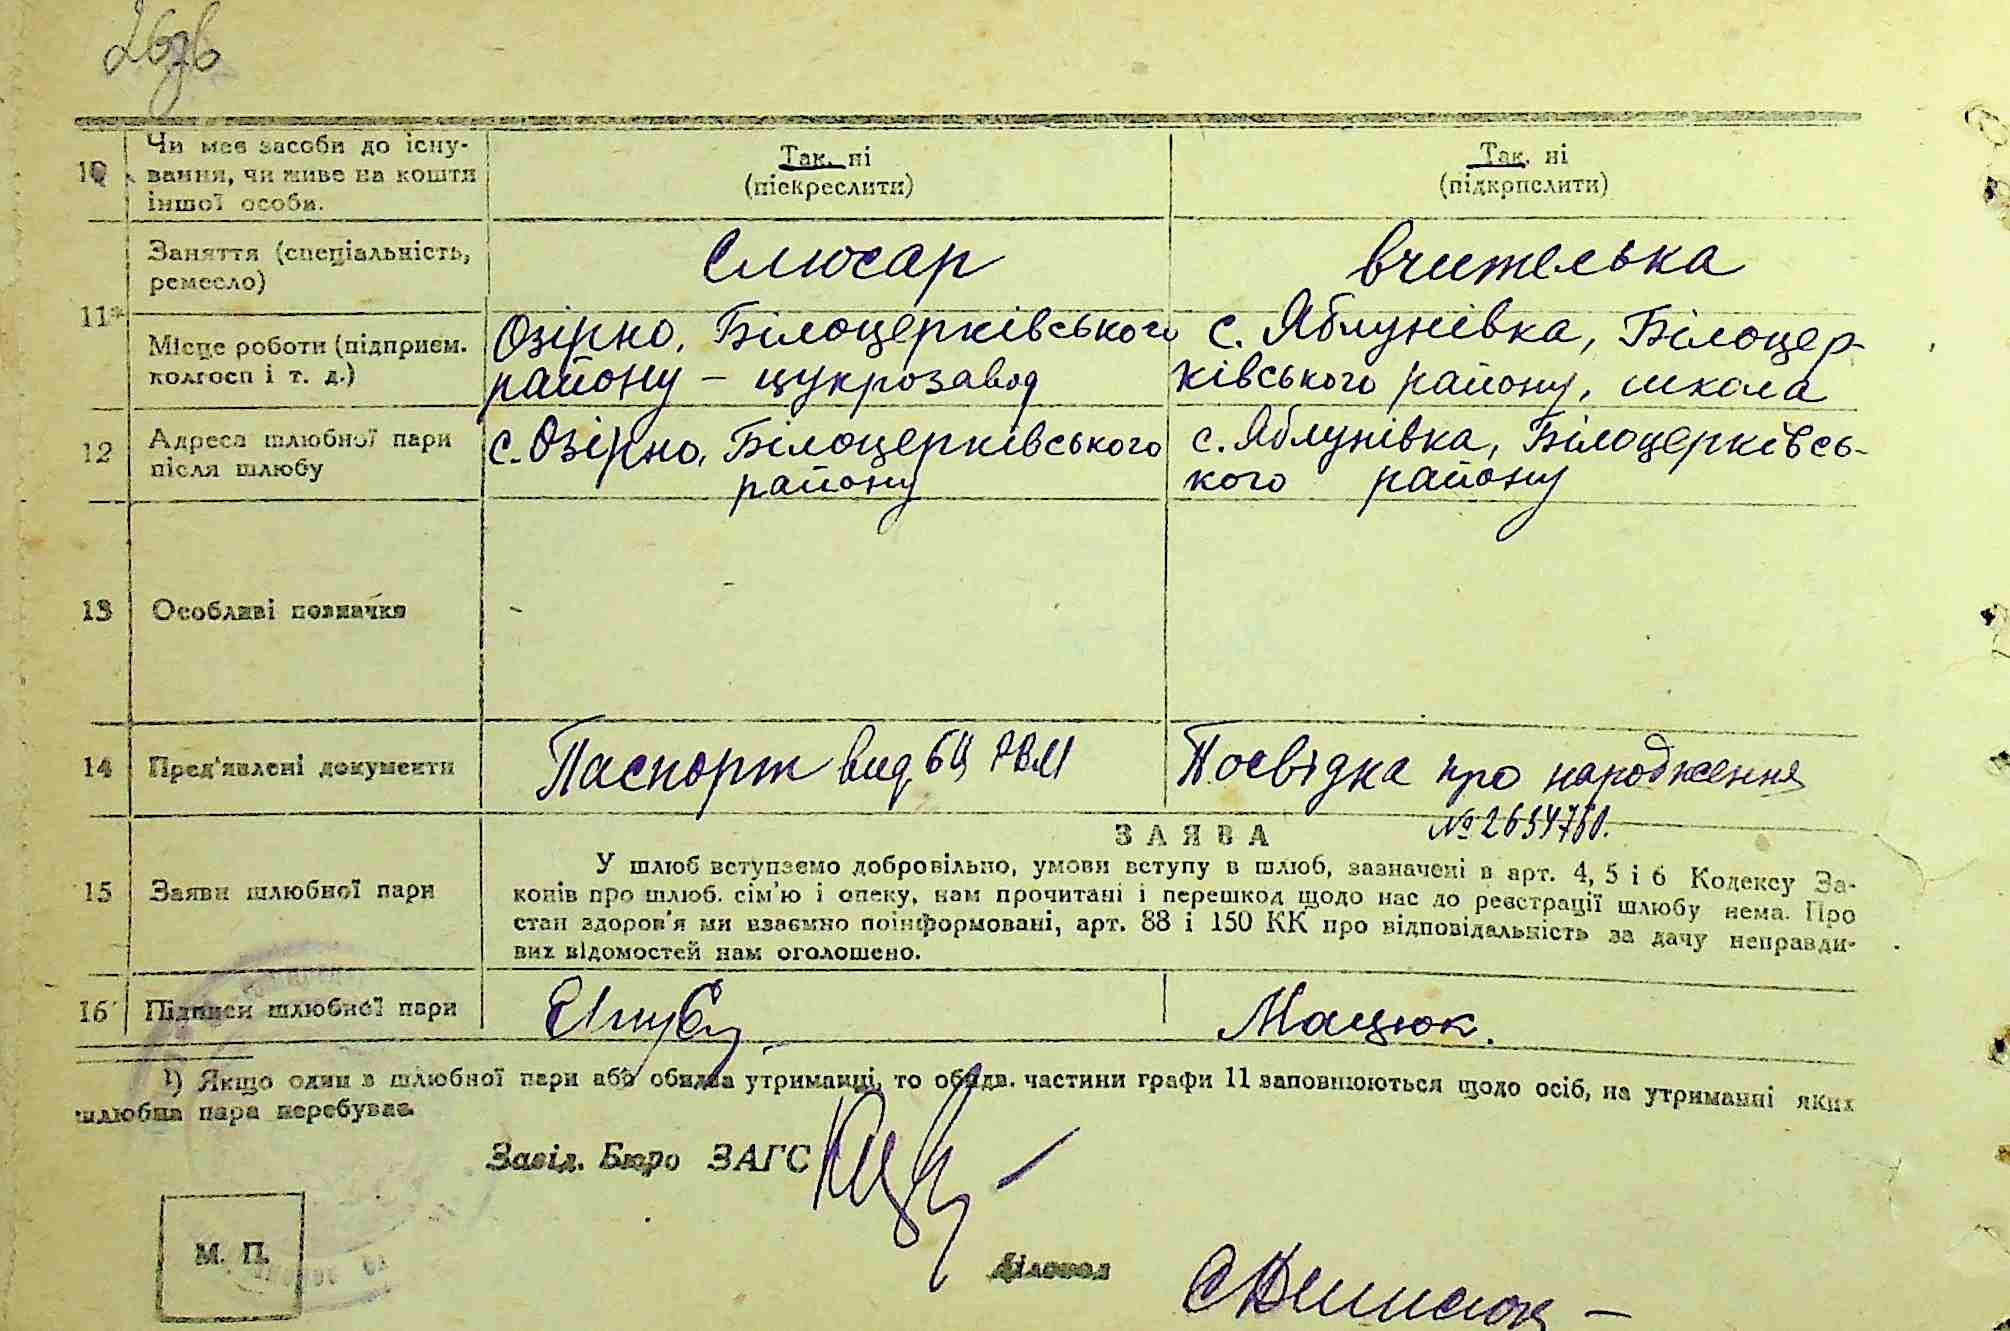 10 Чи має засоби до існу-
вання, чи живе на кошти
іншої особи.
Так, ні
(піскреслити)
Так, ні
(підкрпслити)
11
Заняття (спеціальність,
ремесло)
Слюсар
Вчителька
Місце роботи (підприєм.
колгосп і т. д.)
Озірно, Білоцерківського
району – цукрозавод
с. Яблунівка, Білоцер-
ківського району, школа
12 Адреса шлюбної пари
після шлюбу
с. Озірно, Білоцерківського
району
с. Яблунівка, Білоцерківсь-
кого району
13 Особливі позначки
14 Пред'явлені документи
Паспорт вид. БЦ РВМ
Посвідка про народження
№ 2634750.
15 Заяви шлюбної пари
ЗАЯВА
У шлюб вступаємо добровільно, умови вступу в шлюб, зазначені в арт. 4, 5 і 6 Кодексу За-
конів про шлюб. сім'ю і опеку, нам прочитані і перешкод щодо нас до реєстрації шлюбу нема. Про
стан здоров'я ми взаємно поінформовані, арт. 88 і 150 КК про відповідальність за дачу неправди-
вих відомостей нам оголошено.
16 Підписи шлюбної пари
Мацюк.
1) Якщо один з шлюбної пари або обидва утриманці, то обидв. частини графи 11 заповнюються щодо осіб, на утриманні яких
шлюбна пара перебуває.
Завід. Бюро ЗАГС
М. П.
Діловод